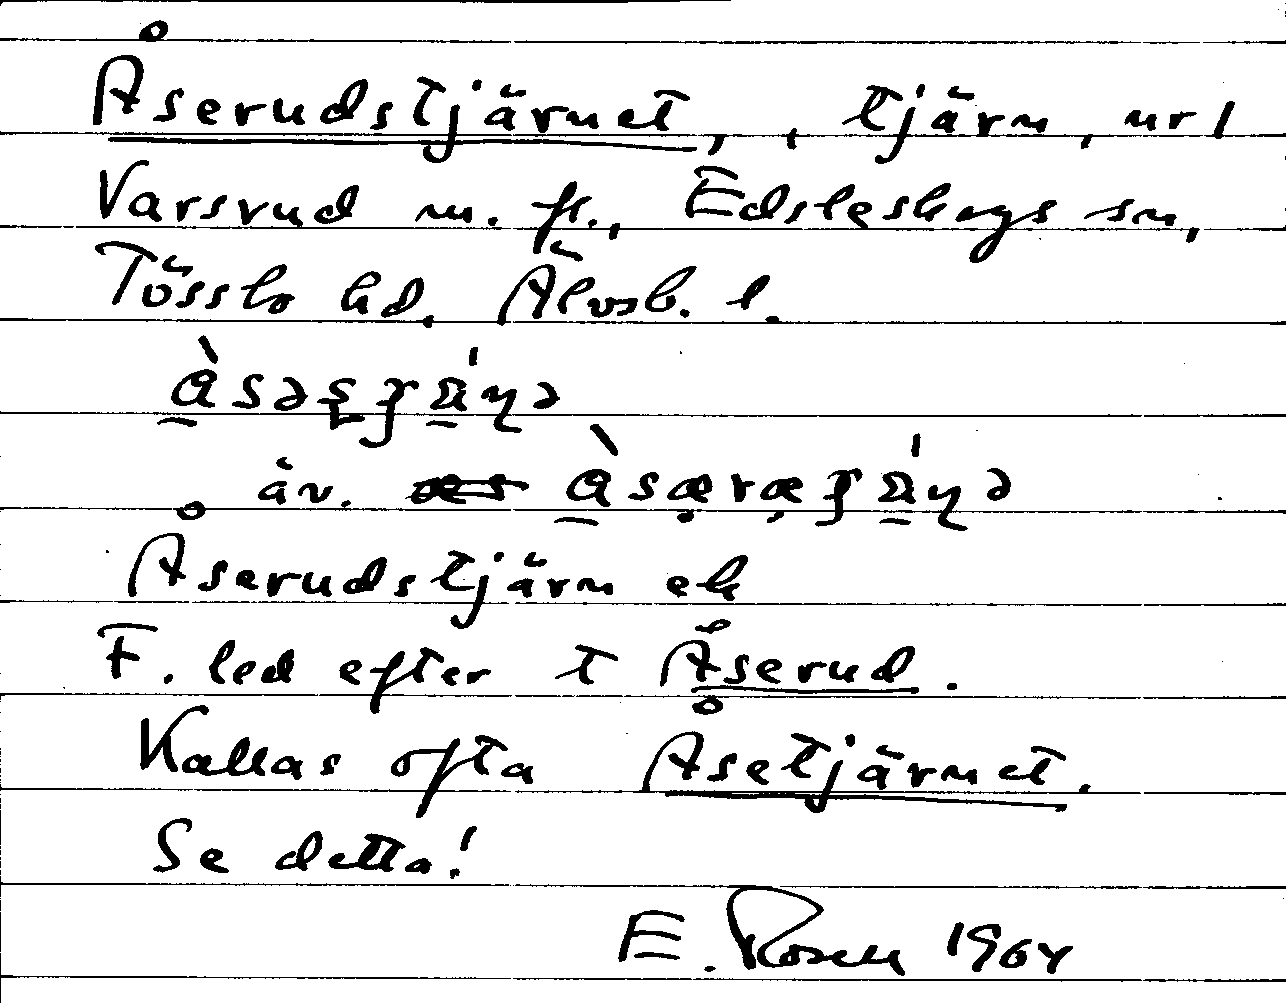 Åserudstjärnet, , tjärn, nr 1
Varsrud m. fl., Edsleskogs sn,
Tössbo hd. Älvsb. l.
äv.
Åserudstjärn ek
F. led efter t Åserud.
Kallas ofta Åsetjärnet.
Se detta!
E. Rosell 1964